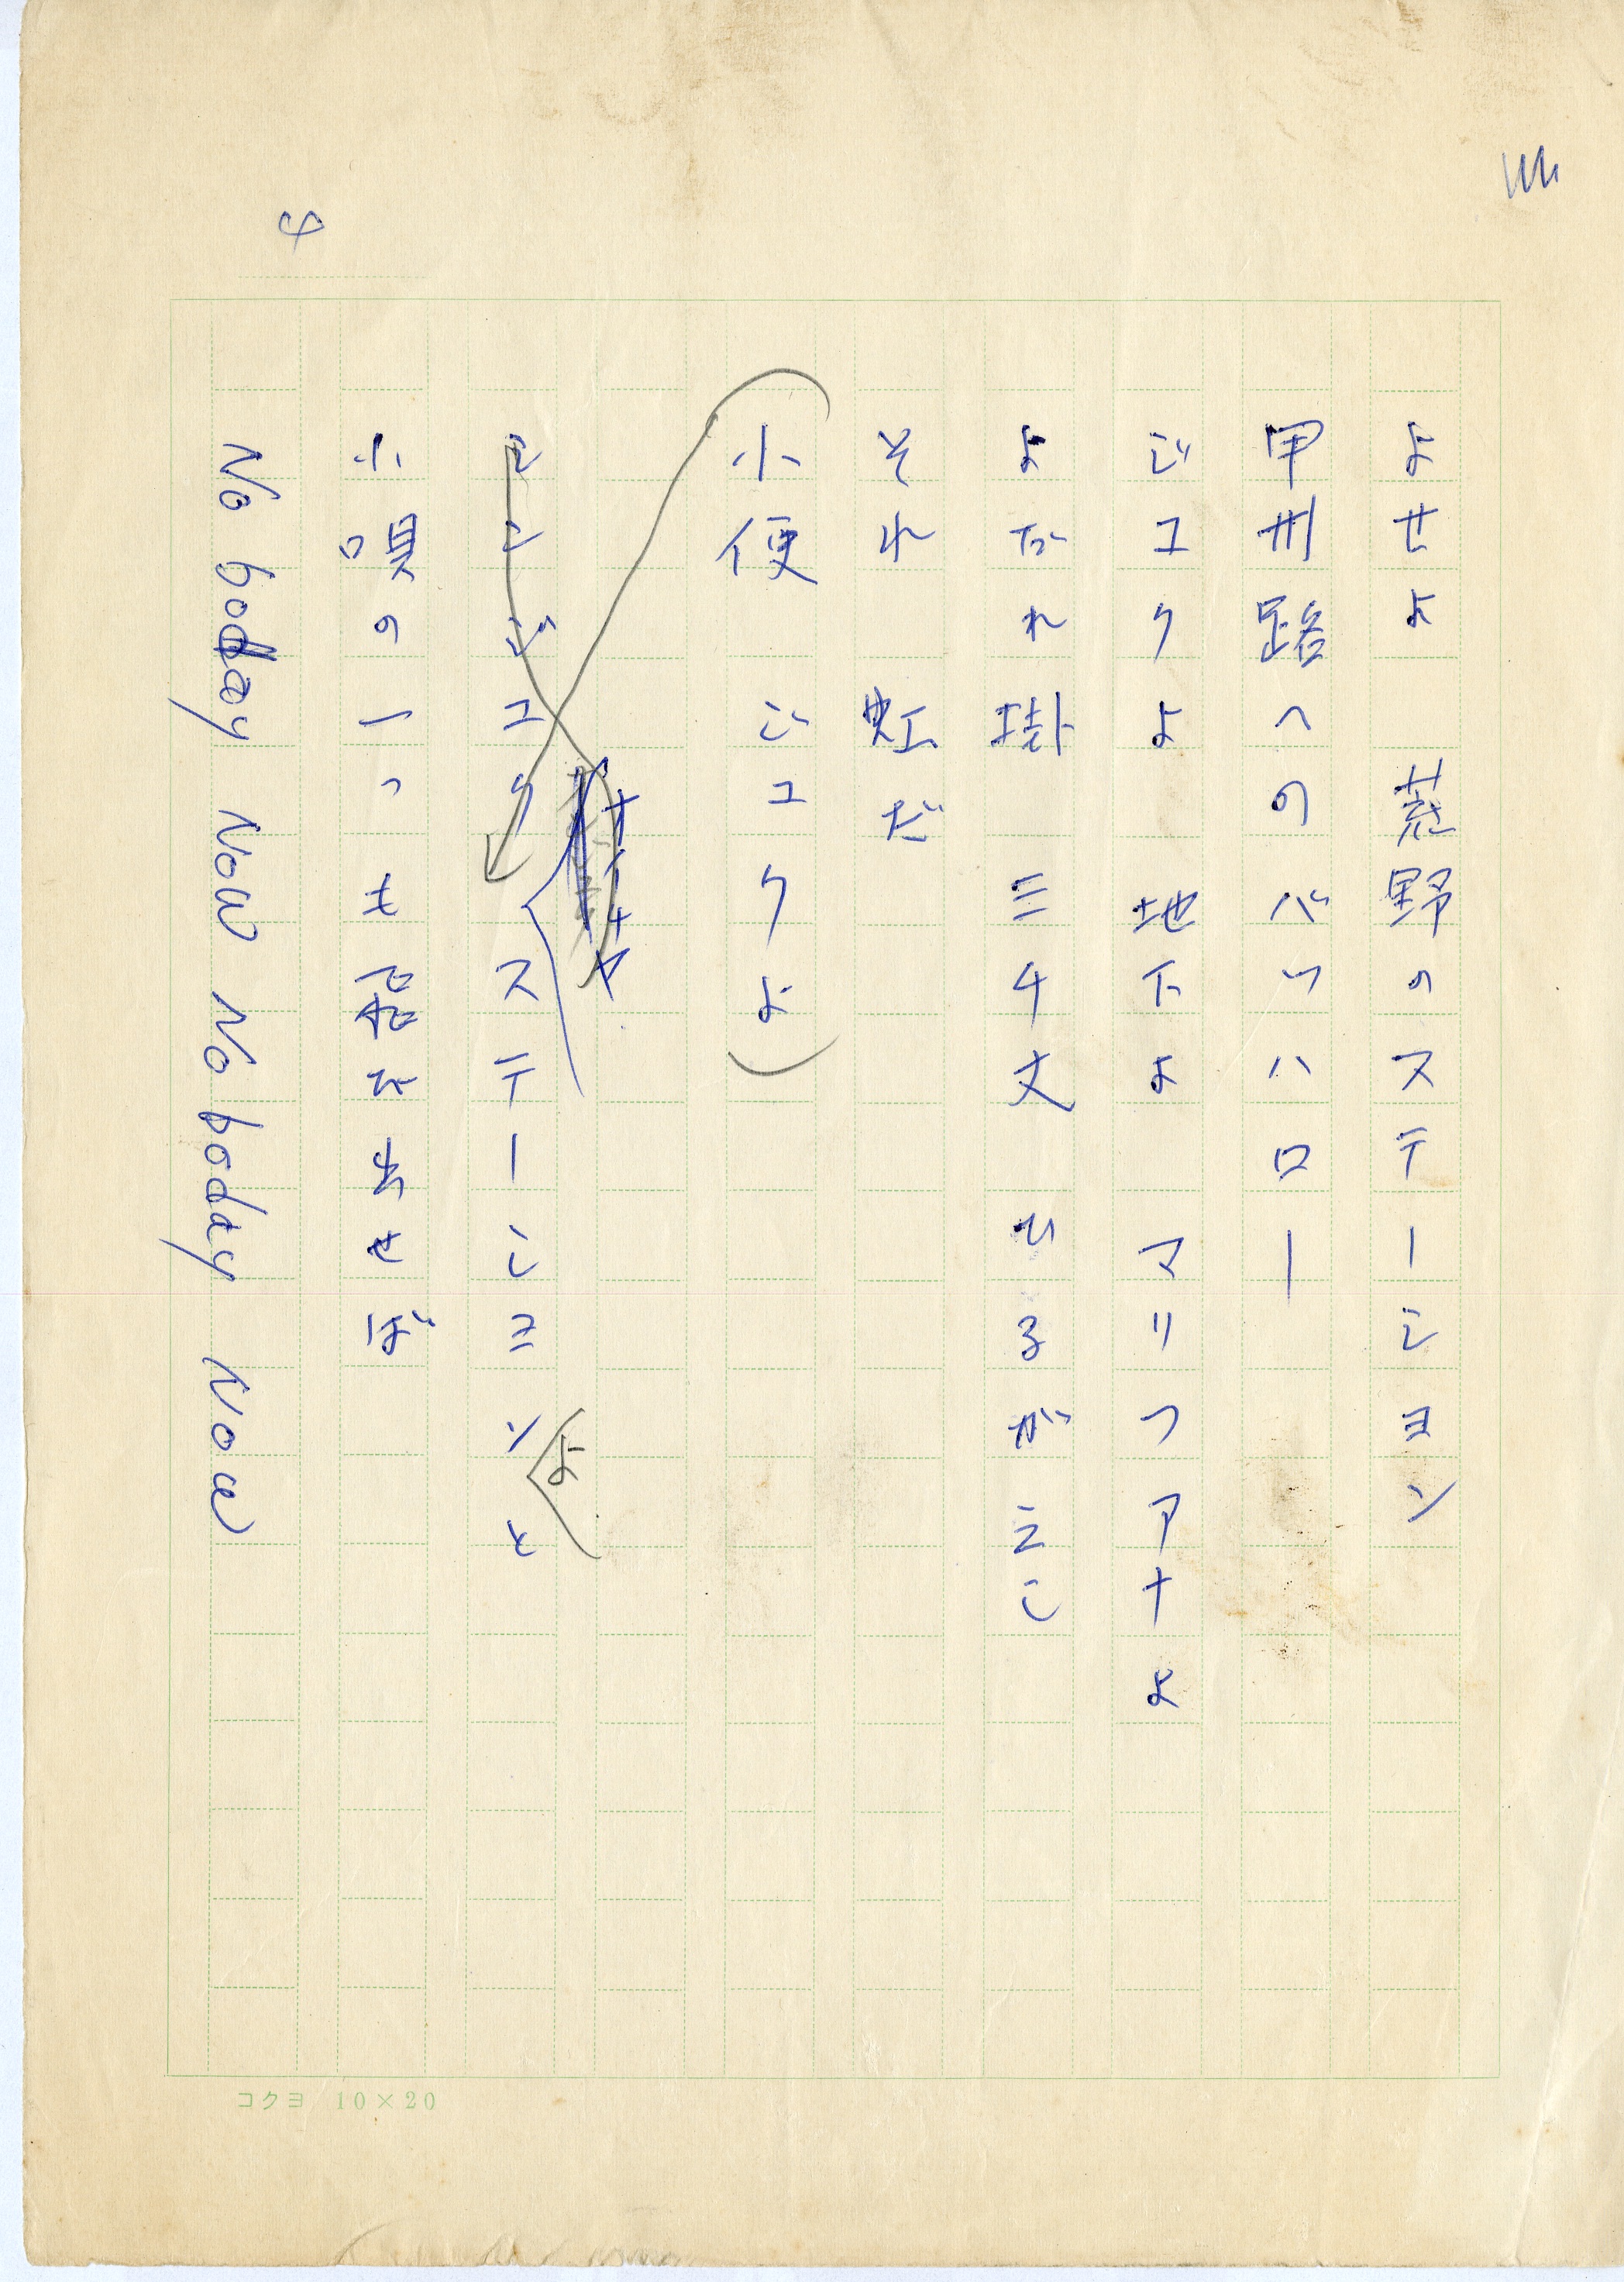 よせよ 荒野のステーシヨン
甲州路へのバツハロー
ジユクよ 地下よ マリフアナよ
よだれ掛 三千丈 ひるがえし
それ 虹だ
(小便ジユクよ)
シンジユク ステーシヨンよと
小唄の一つも せば
No boday Now No boday Now
コクヨ 10×20